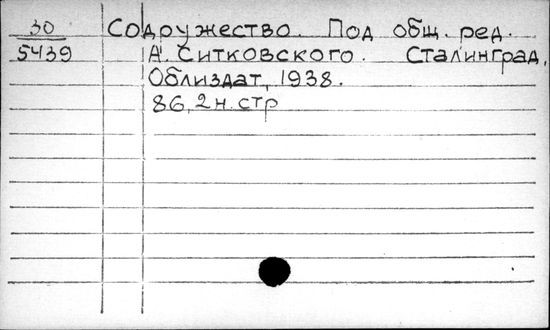 30 Содружество. Под общ. ред.
5439 А. Ситковского. Сталинград,
Облиздат, 1938.
86, 2 н. стр